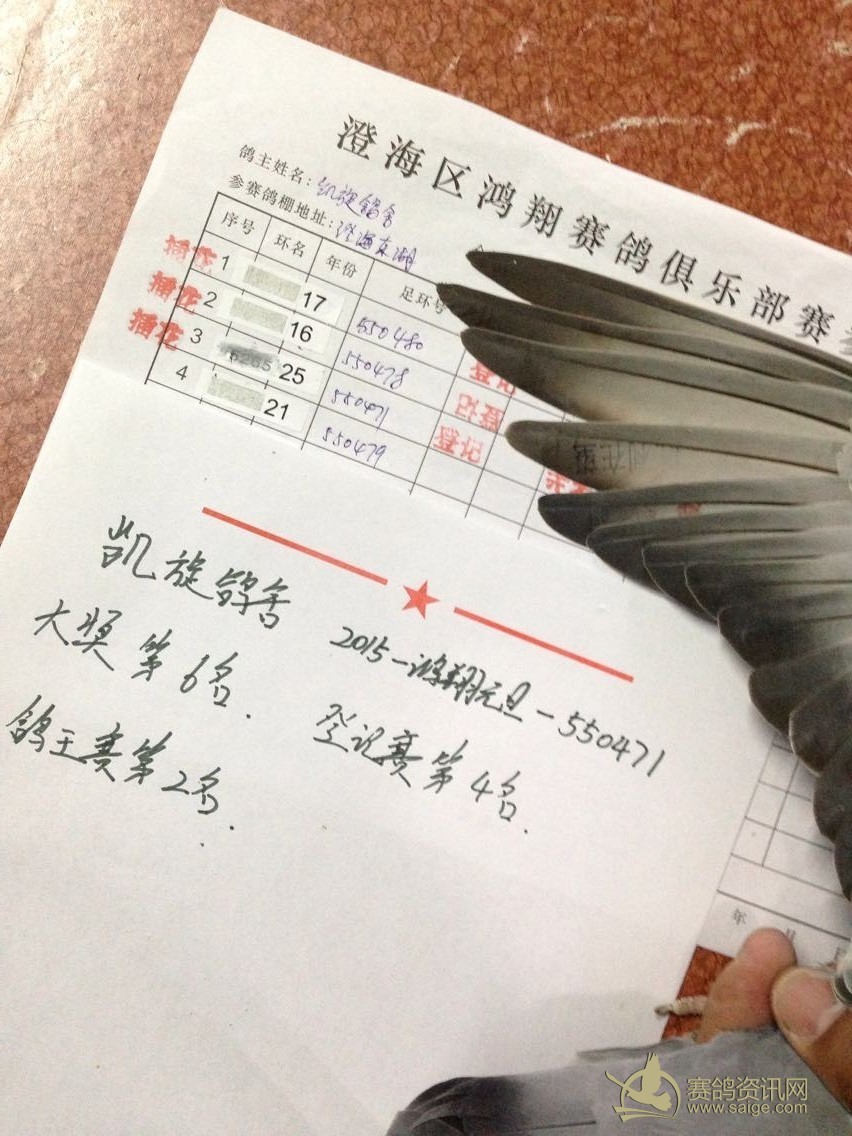 澄海区鸿翔赛鸽俱乐部赛
鸽主姓名：凯旋鸽舍
参赛鸽棚地址：澄海东湖
序号 环名 年份 足环号
插花 1 17 550480 登记
插花 2 16 550478 登记
插花 3 25 550471 登记
4 21 550479
凯旋鸽舍 2015-鸿翔元旦-550471
大奖第6名. 登记赛第4名.
鸽王赛第2名.
年 月
赛鸽资讯网
www.saige.com